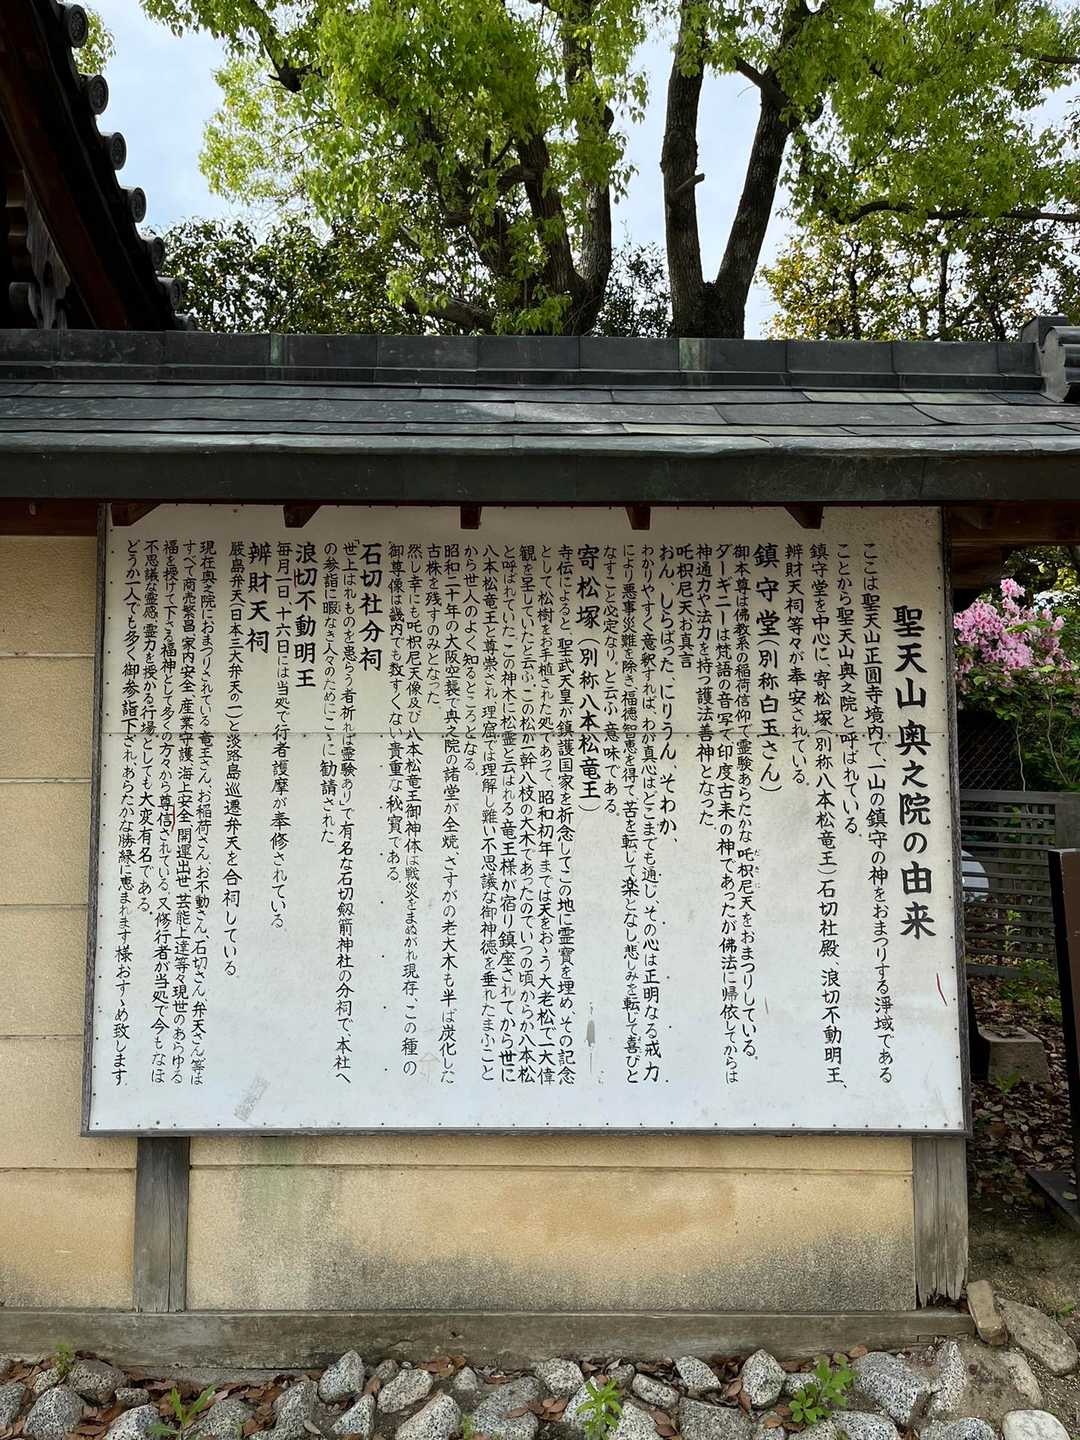 聖天山奥之院の由来
ここは聖天山正圓寺境内で、一山の鎮守の神をおまつりする浄域である
ことから聖天山奥之院と呼ばれている。
鎮守堂を中心に、寄松塚(別称八本松竜王)石切社殿、浪切不動明王、
辨財天祠等々が奉安されている。
鎮守堂(別称白玉さん)
御本尊は佛教系の稲荷信仰で霊験あらたかな吒枳尼天をおまつりしている。
ダーギニーは梵語の音写で印度古来の神であったが佛法に帰依してからは
神通力や法力を持つ護法善神となった。
吒枳尼天お真言
おん、しらばった、にりうん、そわか、
わかりやすく意釈すれば、わが真心はどこまでも通じ、その心は正明なる戒力
により悪事災難を除き福徳智恵を得て、苦を転して楽となし悲しみを転して喜びと
なすこと必定なり、と云ふ意味である。
寄松塚(別称八本松竜王)
寺伝によると聖武天皇が鎮護国家を祈念してこの地に霊寶を埋め、その記念
として松樹をお手植された処であって、昭和初年までは天をおゝう大老松で一大偉
観を呈していたと云ふ、この松が一幹八枝の大木であったので、いつの頃からか八本松
と呼ばれていた、この神木に松霊と云はれる竜王様が宿り鎮座されてから世に
八本松竜王と尊崇され、理窟では理解し難い不思議な御神徳を垂れたまふこと
から世人のよく知るところとなる、
昭和二十年の大阪空襲で奥之院の諸堂が全焼、さすがの老大木も半ば炭化した
古株を残すのみとなった、
然し幸にも吒枳尼天像及び八本松竜王御神体は戦災をまぬがれ現存、この種の
御尊像は畿内でも数すくない貴重な秘寶である。
石切社分祠
「世上はれものを患らう者祈れば霊験あり」で有名な石切劔箭神社の分祠で、本社へ
の参詣に暇なき人々のためにこゝに勧請された
浪切不動明王
毎月一日、十六日には当処で行者護摩が奉修されている
辨財天祠
厳島弁天(日本三大弁天の一)と淡路島巡遷弁天を合祠している。
現在奥之院におまつりされている竜王さん、お稲荷さん、お不動さん、石切さん、弁天さん等は
すべて商売繁昌、家内安全、産業守護、海上安全、開運出世、芸能上達等々現世のあらゆる
福を授けて下さる福神として多くの方々から尊信されている、又修行者が当処で今もなほ
不思議な霊感、霊力を授かる行場としても大変有名である。
どうか一人でも多く御参詣下され、あらたかな勝縁に恵まれます様おすゝめ致します